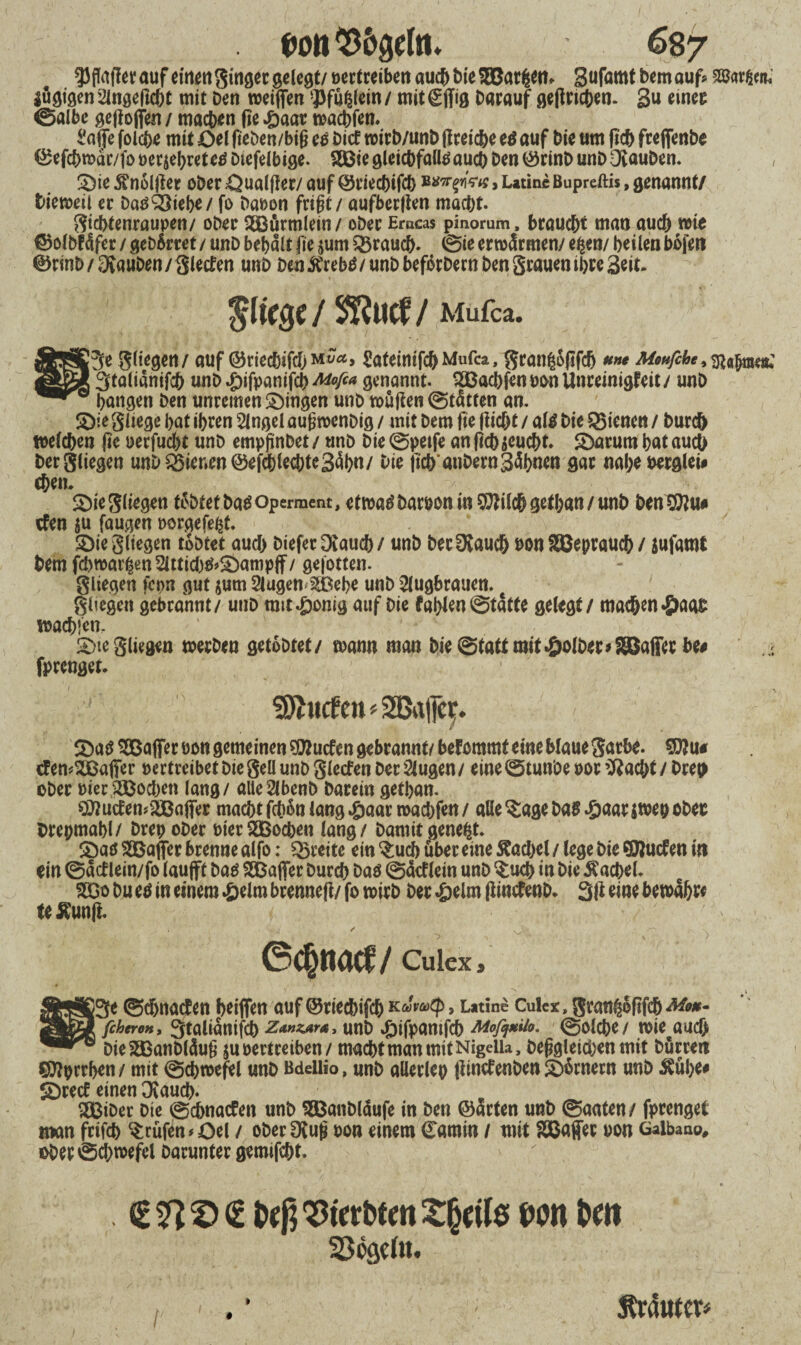 von Vögeln. 687
Pflaster auf einen Finger gelegt/ vertreiben auch die Wartzen. Zusamt dem auf- Wartzen.
zügigen Angesicht mit den weissen Pfützlein/ mit Essig darauf gestrichen. Zu einer
Salbe gestossen/ machen sie Haar wachsen.
Lasse solche mit Oel sieden/biß es dick wird/und streiche es auf die um sich fressende
Geschwär/so verzehret es dieselbige. Wie gleichfalls auch den Grind und Rauden.
Die Knölster oder Qualster/ auf Griechisch Βύπρηςις, Latinè Bupreftis, genannt/
dieweil er das Viehe/ so davon frißt/ aufbersten macht.
Fichtenraupen/ oder Würmlein/ oder Erucas pinorum, braucht man auch wie
Goldkäfer/ gedörret/ und behält sie zum Brauch. Sie erwärmen/ etzen/ heilen bösen
Grind/ Rauden/ Flecken und den Krebs/ und befördern den Frauen ihre Zeit.
Fliege/ Muck/ Mufca.
Die Fliegen/ auf Griechisch Μυα, Lateinisch Mufca, Frantzösisch une Moufche, Nahmen.
Italiänisch und Hispanisch Mofca genannt. Wachsen von Unreinigkeit/ und
hangen den unreinen Dingen und wüsten Stätten an.
Die Fliege hat ihren Angel außwendig/ mit dem sie sticht/ als die Bienen/ durch
welchen sie versucht und empfindet/ und die Speise an sich zeucht. Darum hat auch
der Fliegen und Bienen Geschlechte Zähn/ die sich andern Zähnen gar nahe verglei-
chen.
Die Fliegen tödtet das Operment, etwas darvon in Milch gethan/ und den Mu-
cken zu saugen vorgesetzt.
Die Fliegen tödtet auch dieser Rauch/ und der Rauch von Weyrauch/ zusamt
dem schwartzen Attichs-Dampff/ gesotten.
Fliegen seyn gut zum Augen-Wehe und Augbrauen.
Fliegen gebrannt/ und mit Honig auf die kahlen Stätte gelegt/ machen Haar
wachsen.
Die Fliegen werden getödtet/ wann man die Statt mit Holder-Wasser be-
sprenget.
Mucken-Wasser.
Das Wasser von gemeinen Mucken gebrannt/ bekommt eine blaue Farbe. Mu-
cken-Wasser vertreibet die Fell und Flecken der Augen/ eine Stunde vor Nacht/ drey
oder vier Wochen lang/ alle Abend darein gethan.
Mucken-Wasser macht schön lang Haar wachsen/ alle Tage das Haar zwey oder
dreymahl/ drey oder vier Wochen lang/ damit genetzt.
Das Wasser brenne also: Breite ein Tuch über eine Kachel/ lege die Mucken in
ein Säcklein/so laufft das Wasser durch das Säcklein und Tuch in die Kachel.
Wo du es in einem Helm brennest/ so wird der Helm stinckend. Ist eine bewähr-
te Kunst.
Schnack/ Culex,
Die Schnacken heissen auf Griechisch Κώνωφ, Latinè Culex, Frantzösisch Mou-
fcheron, Italiänisch Zanzara, und Hispanisch Mofquilo. Solche/ wie auch
die Wandläuß zu vertreiben/ macht man mit Nigella, deßgleichen mit dürren
Myrrhen/ mit Schwefel und Bdellio, und allerley stinckenden Dörnern und Kühe-
Dreck einen Rauch.
Wider die Schnacken und Wandläuse in den Gärten und Saaten/ sprenget
man frisch Trüsen-Oel/ oder Ruß von einem Camin/ mit Wasser von Galbano,
oder Schwefel darunter gemischt.
ENDE deß Vierdten Theils von den
Vögeln.
Kräuter-